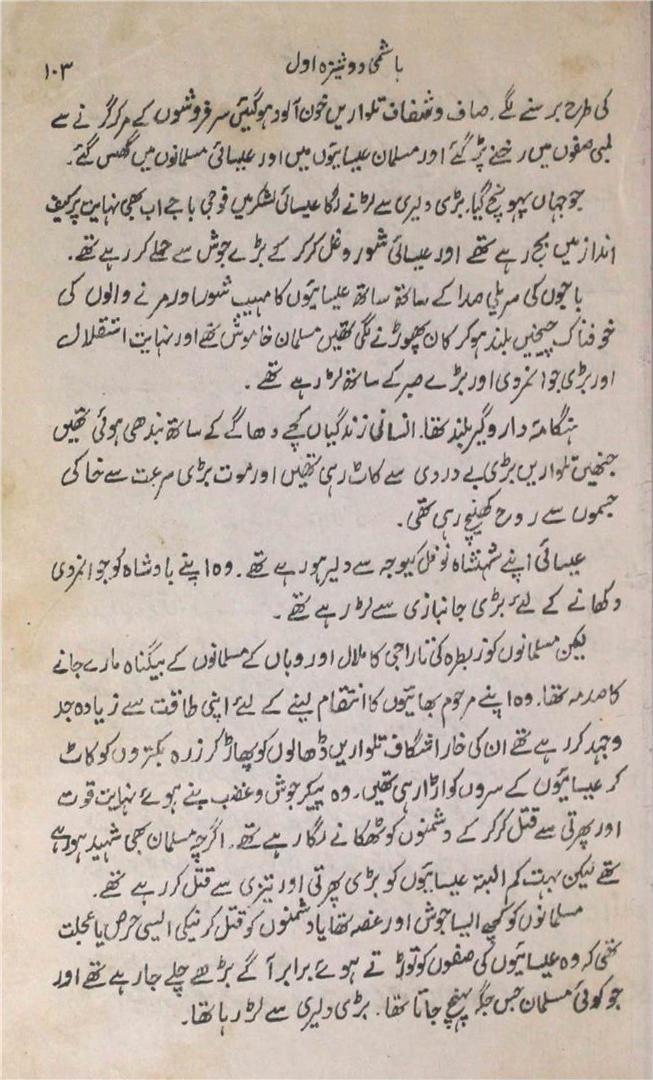 ہاشمی دوشیزہ اول ۱۰۳
کی طرح برسنے لگے۔ صاف و شفاف تلواریں خون آلود ہوگئیں سرفروشوں کے مرکر گرنے سے
لمبی صفوں میں رخنے پڑ گئے اور مسلمان عیسائیوں میں اور عیسائی مسلمانوں میں گھس گئے۔
جو جہاں پہونچ گیا۔ بڑی دلیری سے لڑنے لگا عیسائی لشکر میں فوجی باجے اب بھی نہایت پرکیف
انداز میں بج رہے تھے اور عیسائی شور و غل کرکر کے بڑے جوش سے حملے کر رہے تھے۔
باجوں کی سریلی صدا کے ساتھ ساتھ عیسائیوں کا مہیب شور اور مرنے والوں کی
خوفناک چیخیں بلند ہوکر کان پھوڑنے لگی تھیں مسلمان خاموش تھے اور نہایت استقلال
اور بڑی جوانمردی اور بڑے صبر کے ساتھ لڑ رہے تھے۔
ہنگامۂ دار و گیر بلند تھا۔ انسانی زندگیاں کچے دھاگے کے ساتھ بندھی ہوئی تھیں
جنھیں تلواریں بڑی بے دردی سے کاٹ رہی تھیں اور موت بڑی سرعت سے خاکی
جسموں سے روح کھینچ رہی تھی۔
عیسائی اپنے شہنشاہ نوفل کیوجہ سے دلیر ہو رہے تھے۔ وہ اپنے بادشاہ کو جوانمردی
دکھانے کے لئے بڑی جانبازی سے لڑ رہے تھے۔
لیکن مسلمانوں کو زبطرہ کی تاراجی کا ملال اور وہاں کے مسلمانوں کے بیگناہ مارے جانے
کا صدمہ تھا۔ وہ اپنے مرحوم بھائیوں کا انتقام لینے کے لئے اپنی طاقت سے زیادہ جد
وجہد کر رہے تھے ان کی خارا شگاف تلواریں ڈھالوں کو پھاڑ کر زرہ بکتروں کو کاٹ
کر عیسائیوں کے سروں کو اڑا رہی تھیں۔ وہ پیکر جوش و غضب بنے ہوئے نہایت قوت
اور پھرتی سے قتل کرکر کے دشمنوں کو ٹھکانے لگا رہے تھے۔ اگرچہ مسلمان بھی شہید ہو رہے
تھے لیکن بہت کم البتہ عیسائیوں کو بڑی پھرتی اور تیزی سے قتل کر رہے تھے۔
مسلمانوں کو کچھ ایسا جوش اور غصہ تھا یا دشمنوں کو قتل کرنیکی ایسی حرص یا عجلت
تھی کہ وہ عیسائیوں کی صفوں کو توڑتے ہوئے برابر آگے بڑھے چلے جارہے تھے اور
جو کوئی مسلمان جس جگہ پہنچ جاتا تھا۔ بڑی دلیری سے لڑ رہا تھا۔